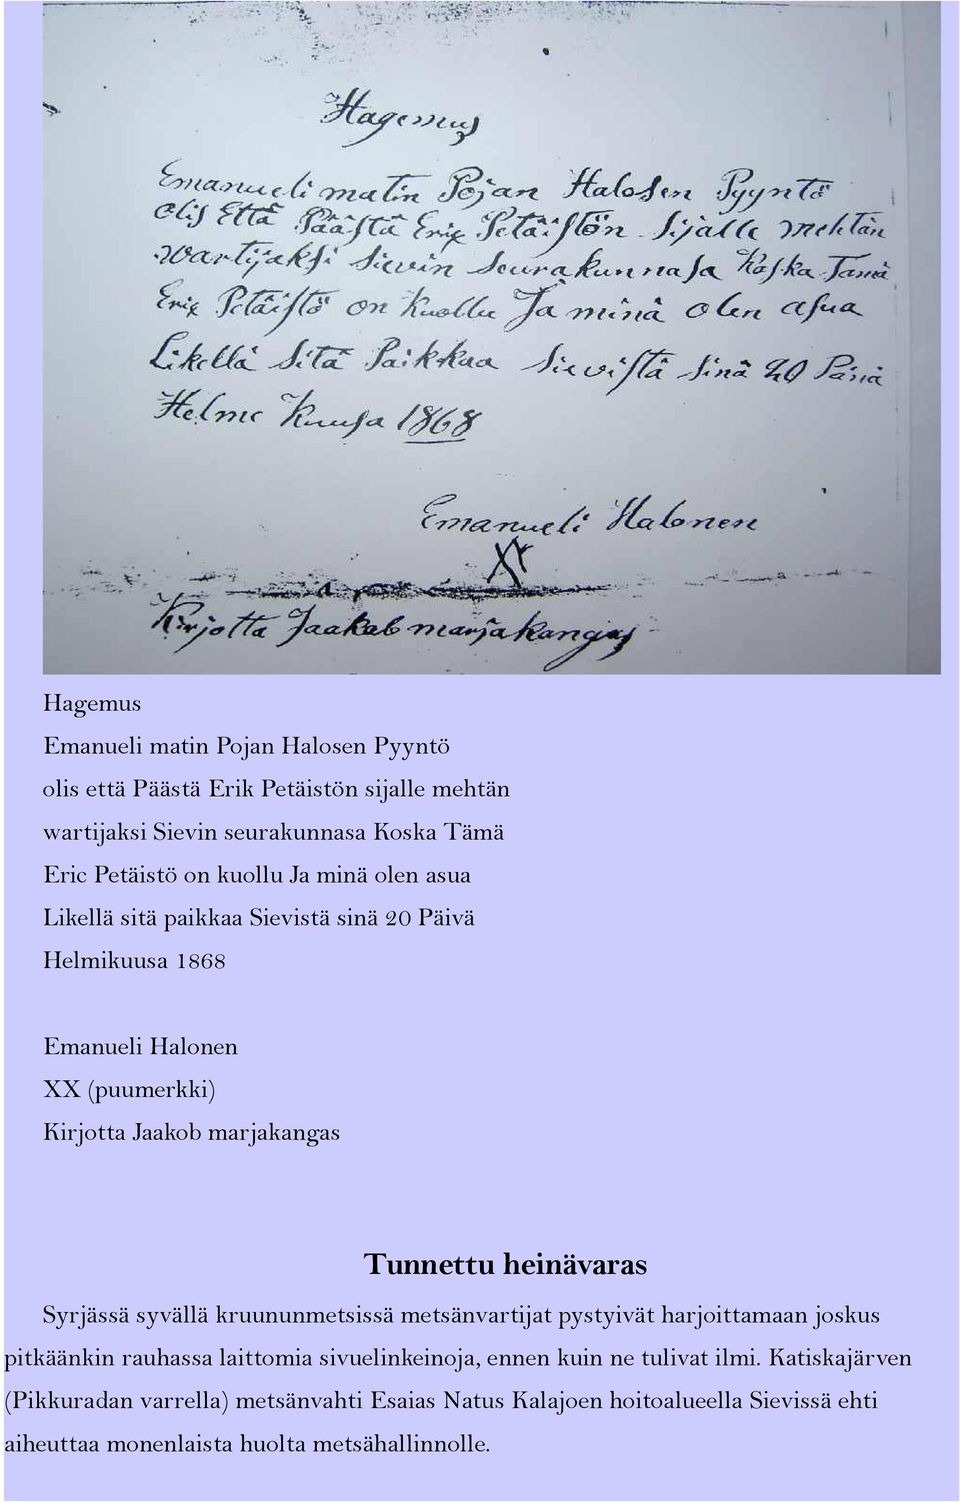 Hagemus
Emanueli matin Pojan Halosen Pyyntö
olis Että Päästä Erix Petäistön Sijalle mehtän
wartijaksi Sievin Seurakunnasa Koska Tämä
Erix Petäistö on Kuollu Ja minä olen asua
Likellä Sitä Paikkaa Sievistä Sinä 20 Pänä
Helme Kuusa 1868
Emanueli Halonen
XX
Kirjotta Jaakob marjakangas
Hagemus
Emanueli matin Pojan Halosen Pyyntö
olis että Päästä Erik Petäistön sijalle mehtän
wartijaksi Sievin seurakunnasa Koska Tämä
Eric Petäistö on kuollu Ja minä olen asua
Likellä sitä paikkaa Sievistä sinä 20 Päivä
Helmikuusa 1868
Emanueli Halonen
XX (puumerkki)
Kirjotta Jaakob marjakangas
Tunnettu heinävaras
Syrjässä syvällä kruununmetsissä metsänvartijat pystyivät harjoittamaan joskus
pitkäänkin rauhassa laittomia sivuelinkeinoja, ennen kuin ne tulivat ilmi. Katiskajärven
(Pikkuradan varrella) metsänvahti Esaias Natus Kalajoen hoitoalueella Sievissä ehti
aiheuttaa monenlaista huolta metsähallinnolle.